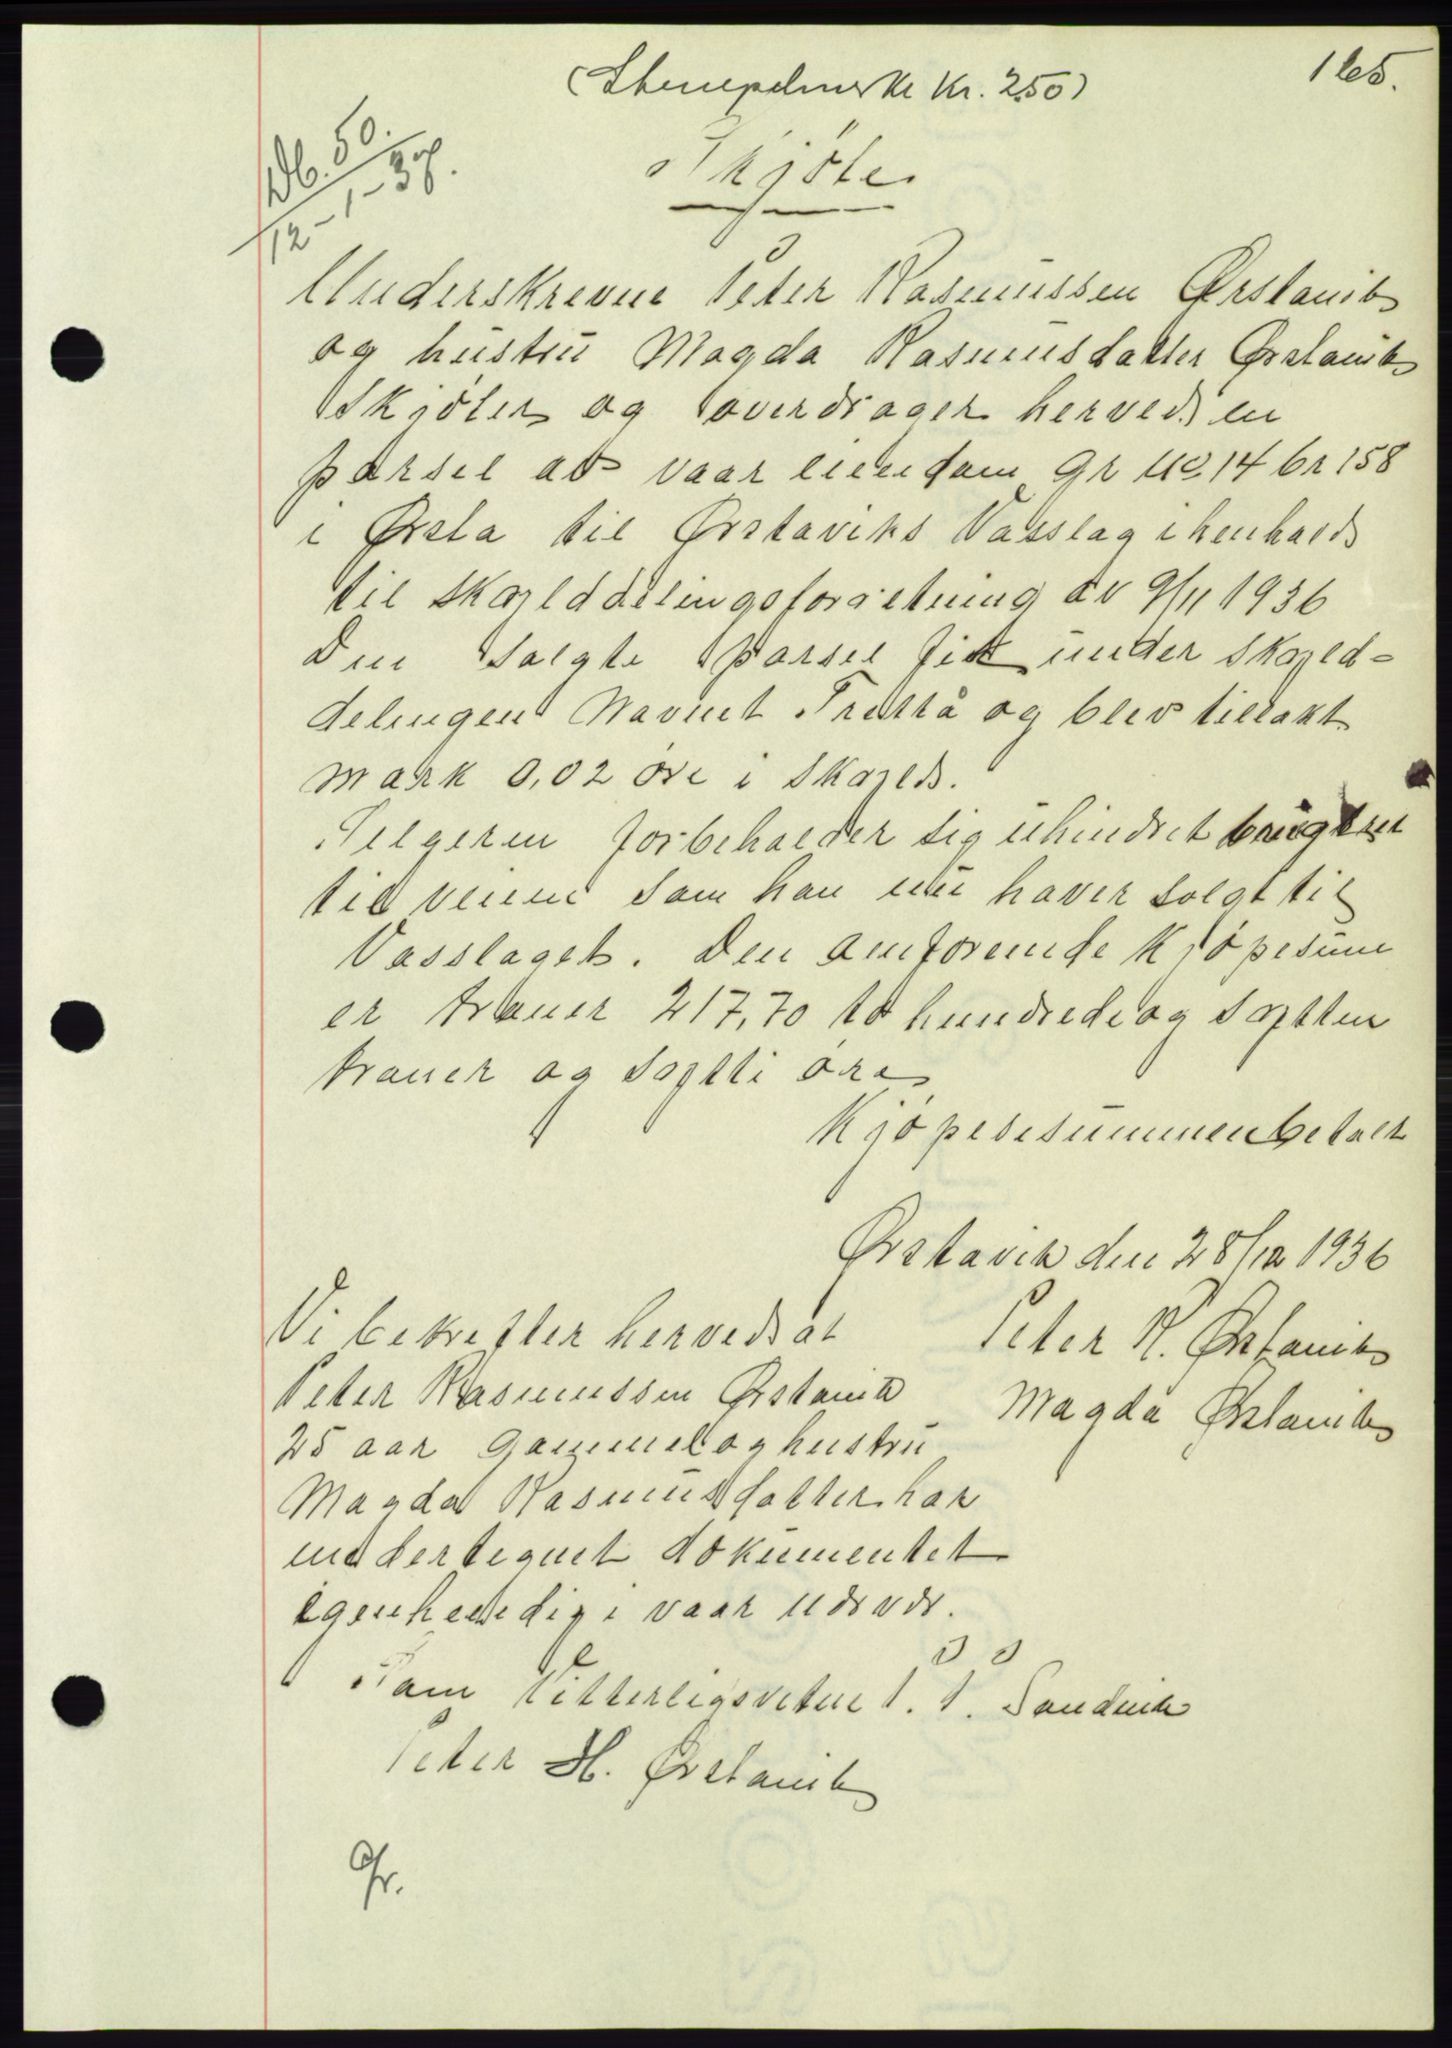 165.
(Stempelmerke Kr. 2,50)
Db. 50.
12-1-37.
Skjøte
Underskrevne Peter Rasmussen Ørstavik
og hustru Magda Rasmusdatter Ørstavik
Skjøter og overdrager herved en
parsel av vaar eiendom gr no 14 br 158
i Ørsta til Ørstaviks Vasslag i henhold
til skylddelingsforretning av 9/11 1936
Den solgte parsel fik under skyld-
delingen navnet Trettå og blev tillakt
mark 0,02 øre i skyld.
Selgeren forbeholder sig uhindret brugsret
til veien som han nu haver solgt til
Vasslaget. Den omforende kjøpesum
er kroner 217,70 to hundrede og sytten
kroner og sytti øre
Kjøpesesummen betalt
Ørstavik den 28/12 1936
Peter R. Ørstavik
Magda Ørstavik
Vi bekrefter herved at
Peter Rasmussen Ørstavik
25 aar gammel og hustru
Magda Rasmusdatter har
undertegnet dokumentet
egenhendig i vaar nærvær.
Som Vitterligsvitne P. P. Sandvik
Peter H. Ørstavik
Gr.